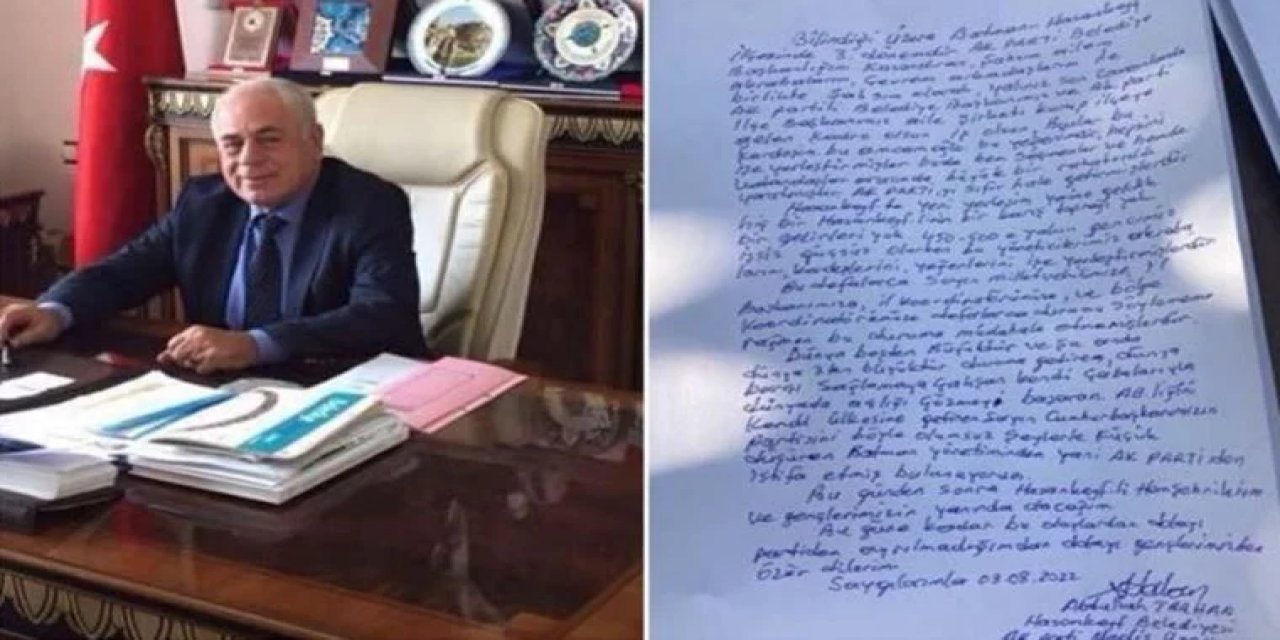 Bilindiği üzere Batman Hasankeyf
İlçesinde 3. dönemdir AK PARTİ Belediye
Başkanlığını Kazandıran, Şahsım ailem
akrabalarım Çevrem arkadaşlarım ile
birlikte şahsım olarak yalnız son zamanlarda
AK partili Belediye Başkanımız ve AK parti
İlçe Başkanımız aile şirketi kurup ilçeye
gelen Kadro olsun iş olsun
kardeşin bu amcamoğlu bu yeğenimdir hepsini
işe yerleştirmişler buda ben Seçmenler ve
vatandaşlar arasında büyük bir rahatsızlık
yaratmışlar AK PARTİ'yi sıfır hale getirmişlerdir
Hasankeyf'te yeni yerleşim yerine geldik
hiç bir Hasankeyf'linin bir karış toprağı yok
bir gelirleri yok 450-500 e yakın gencimiz
işsiz güçsüz olarken bu yöneticilerimiz akraba
larını, kardeşlerini, yeğenlerini işe yerleştirmişlerdir
Bu defalarca Sayın milletvekilimize, il
Başkanımıza, il Koordinatörümüze, ve bölge
Koordinatörümüze defalarca durumu Söylememe
rağmen bu duruma müdahale etmemişlerdir.
Dünya beşten Büyüktür ve şu anda
dünya 5ten büyüktür duruma getiren, dünya
barışı Sağlamaya Çalışan kendi Çabalarıyla
dünyada açlığı Çözmeyi başaran
Kendi ülkesine getiren Sayın Cumhurbaşkanımızın
Partisini böyle olumsuz Şeylerle küçük
düşüren Batman yönetiminden yani AK PARTİ'den
istifa etmiş bulunuyorum
Bu günden sonra Hasankeyf'li Hemşehrilerim
ve gençlerimizin yanında olacağım
Bu güne kadar bu olaylardan dolayı
partiden ayrılmadığımdan dolayı gençlerimizden
Özür dilerim
Saygılarımla 03.08.2022
Abdullah
Hasankeyf Belediyesi
AK Parti